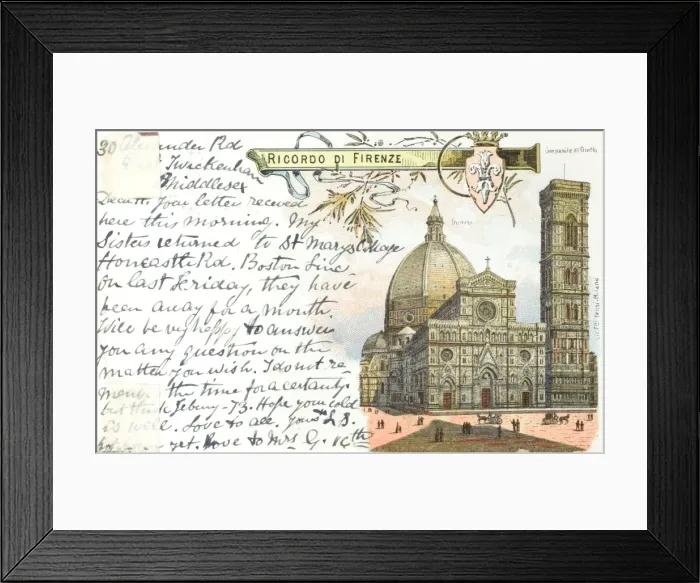 30 Alexander Rd
Twickenham
Middlesex
Dear H. Your letter received
here this morning. My
Sisters returned to St Marys College
Horncastle Rd. Boston Linc
on last Friday, they have
been away for a month.
Will be vy happy to answer
you any question on the
matter you wish. I do not re
mem the time for a certanty
but think Febury - 73. Hope your cold
is well. Love to all. yours
yet. love to Mrs G. 16th
RICORDO DI FIRENZE
Campanile di Giotto
Duomo